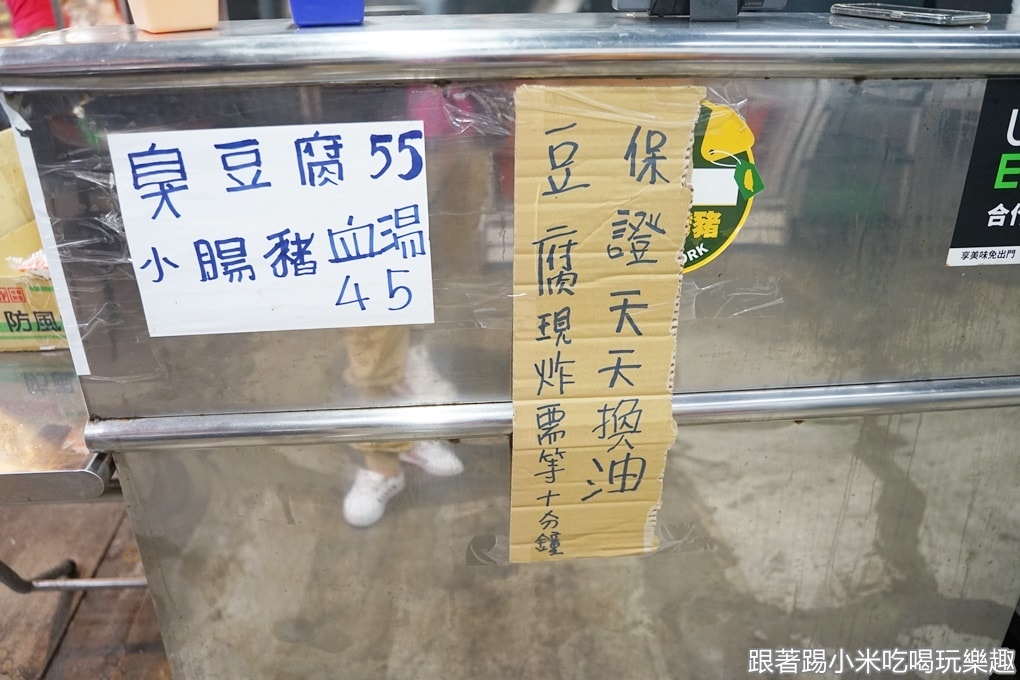 臭豆腐55
小腸豬血湯
45
保證天天換油
豆腐現炸需等十分鐘
豬
RK
防風
U
E
合作
享美味免出門
跟著踢小米吃喝玩樂趣